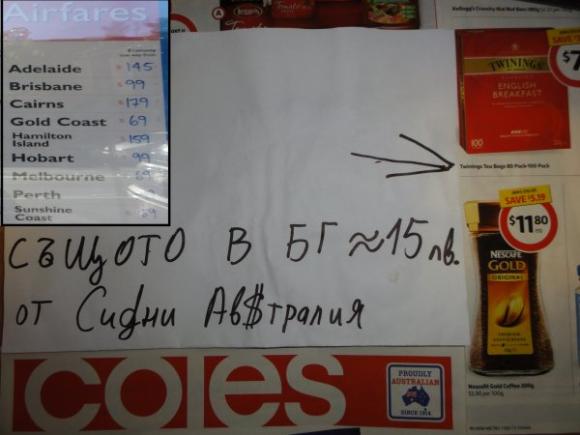 Airfares
Adelaide $145
Brisbane $99
Cairns $179
Gold Coast $69
Hamilton Island $159
Hobart $99
Melbourne
Perth
Sunshine Coast
SAVE
TWININGS
ENGLISH BREAKFAST
100
Twinings Tea Bags 80 Pack-100 Pack
SAVE $5.19
$11.80
NESCAFÉ
GOLD
ORIGINAL
Nescafé Gold Coffee 200g
същото в БГ ≈15 лв.
от Сидни Ав$тралия
coles
PROUDLY
AUSTRALIAN
SINCE 1914